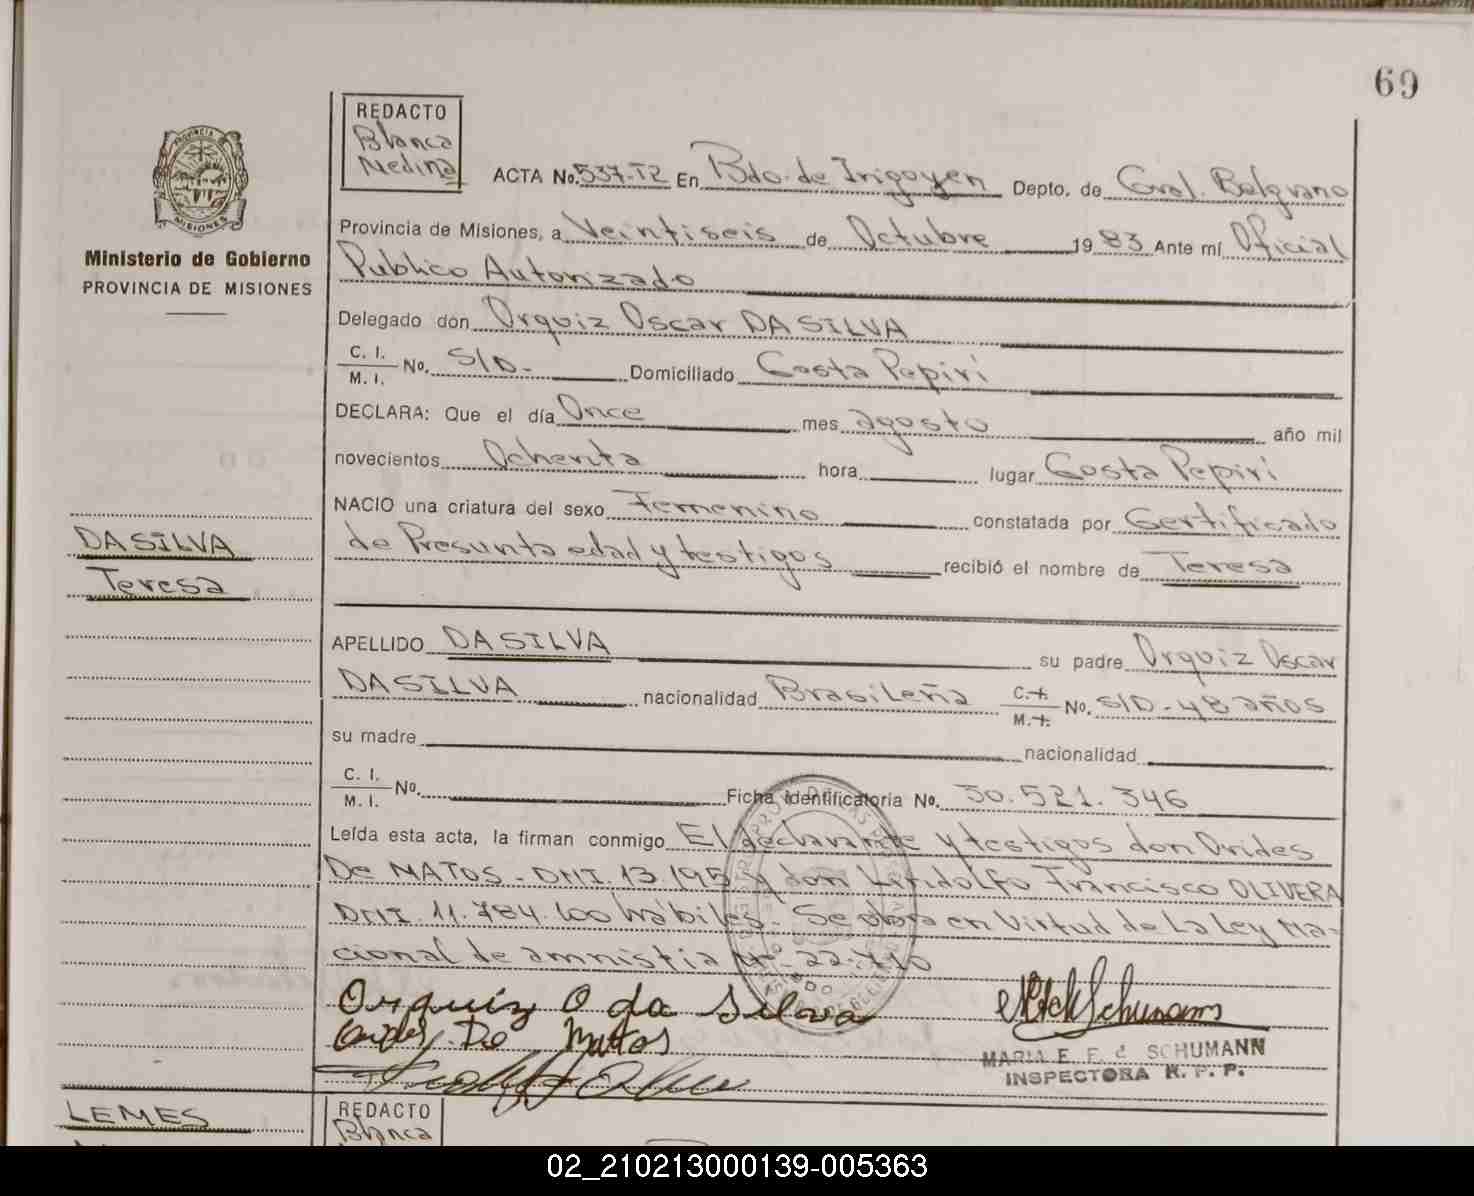 69
REDACTO
Blanca
Medina
ACTA No. 537-T2 En Bdo. de Irigoyen Depto. de Gral. Belgrano
PROVINCIA
MISIONES
Provincia de Misiones, a Veintiseis de Octubre 1983 Ante mí Oficial
Ministerio de Gobierno
PROVINCIA DE MISIONES
Publico Autorizado
Delegado don Orquiz Oscar DA SILVA
C. I.
M. I. No. S/D.- Domiciliado Costa Pepirí
DECLARA: Que el día Once mes agosto año mil
novecientos Ochenta hora lugar Costa Pepirí
NACIO una criatura del sexo Femenino constatada por Certificado
DA SILVA
Teresa
de Presunta edad y testigos recibió el nombre de Teresa
APELLIDO DA SILVA su padre Orquiz Oscar
DA SILVA nacionalidad Brasileña C. I. M. I. No. S/D - 48 años
su madre nacionalidad
C. I.
M. I. No. Ficha Identificatoria No. 30.521.346
Leída esta acta, la firman conmigo El declarante y testigos don Orides
De MATOS - DNI 13.195 y don Lindolfo Francisco OLIVERA
DNI. 11.784.100 hábiles.- Se labra en Virtud de La Ley Na-
cional de amnistia Nº 22.710
Orquiz O da Silva
Orides De Mattos
MARIA E. F. d SCHUMANN
INSPECTORA R. P. P.
LEMES
REDACTO
Blanca
02_210213000139-005363